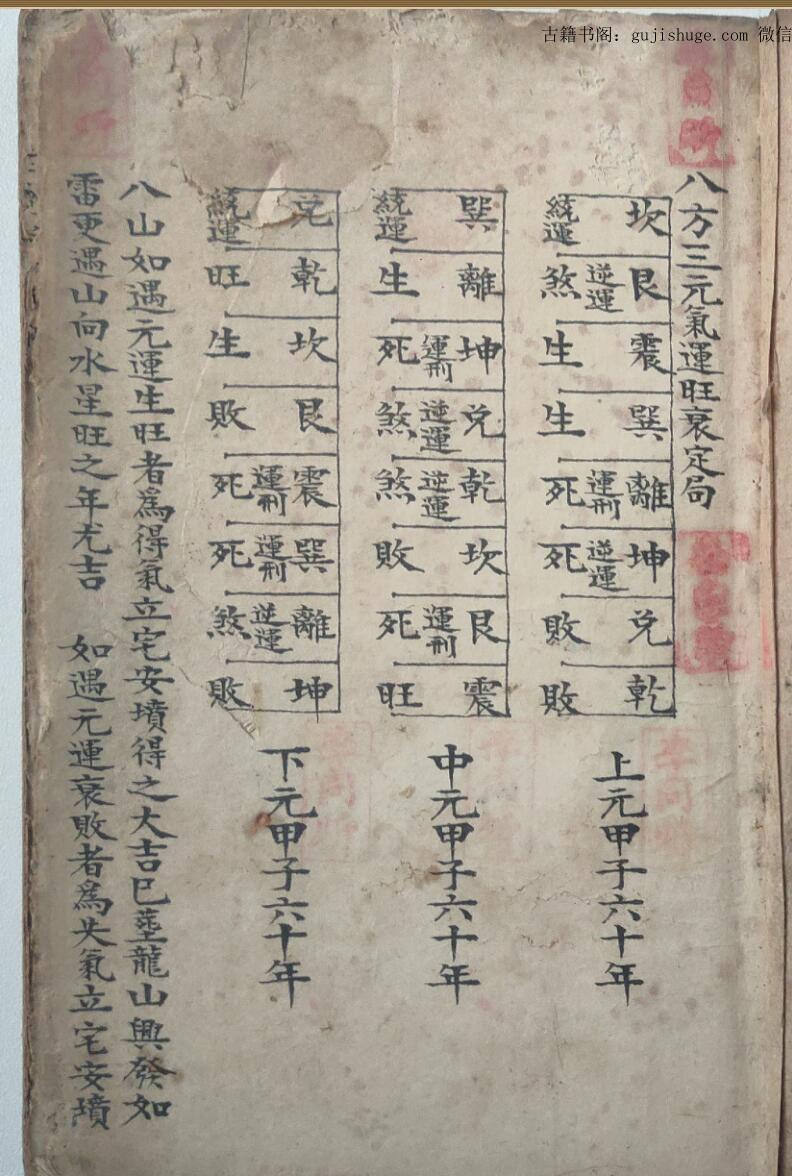 古籍书阁：gujishuge.com 微信
八方三元氣運旺衰定局
坎 統運
艮 逆運 煞
震 生
巽 生
離 運刑 死
坤 逆運 死
兌 敗
乾 敗
上元甲子六十年
巽 統運
離 生
坤 運刑 死
兌 逆運 煞
乾 逆運 煞
坎 敗
艮 運刑 死
震 旺
中元甲子六十年
兌 統運
乾 旺
坎 生
艮 敗
震 運刑 死
巽 運刑 死
離 逆運 煞
坤 敗
下元甲子六十年
八山如遇元運生旺者爲得氣立宅安墳得之大吉巳塟龍山興發如
雷更遇山向水星旺之年尤吉 如遇元運衰敗者爲失氣立宅安墳